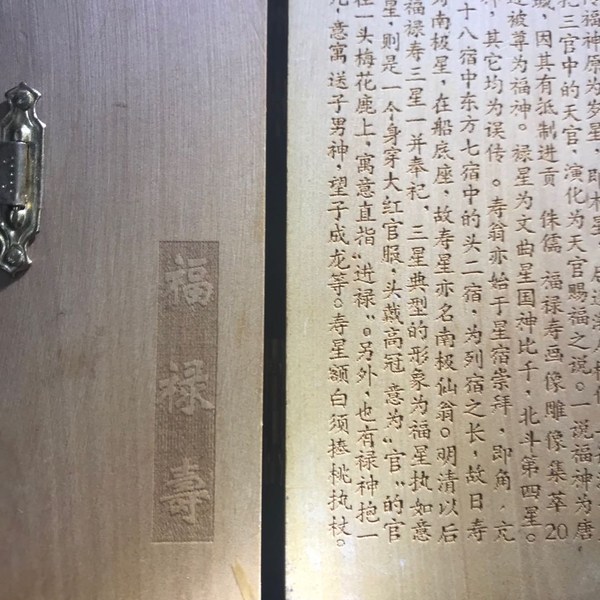 福祿壽
福神原为岁星，即木星，
三官中的天官，演化为天官赐福之说。一说福神为唐
因其有抵制进贡 侏儒 福禄寿画像雕像集萃20
被尊为福神。禄星为文曲星国神比干，北斗第四星。
其它均为误传 。寿翁亦始于星宿崇拜，即角，亢
十八宿中东方七宿中的头二宿，为列宿之长，故日寿
南极星，在船底座，故寿星亦名南极仙翁。明清以后
福禄寿三星一并奉祀，三星典型的形象为福星执如意
星，则是一个身穿大红官服，头戴高冠 意为“官”的官
在一头梅花鹿上，寓意直指“进禄”。另外，也有禄神抱一
儿，意寓送子男神，望子成龙等。寿星额白须捧桃执杖。